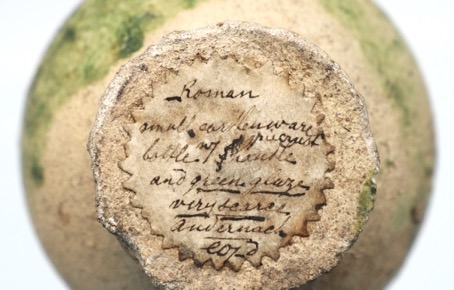 Roman
small earthenware
bottle wt handle
and green glaze
very scarce
Andernach